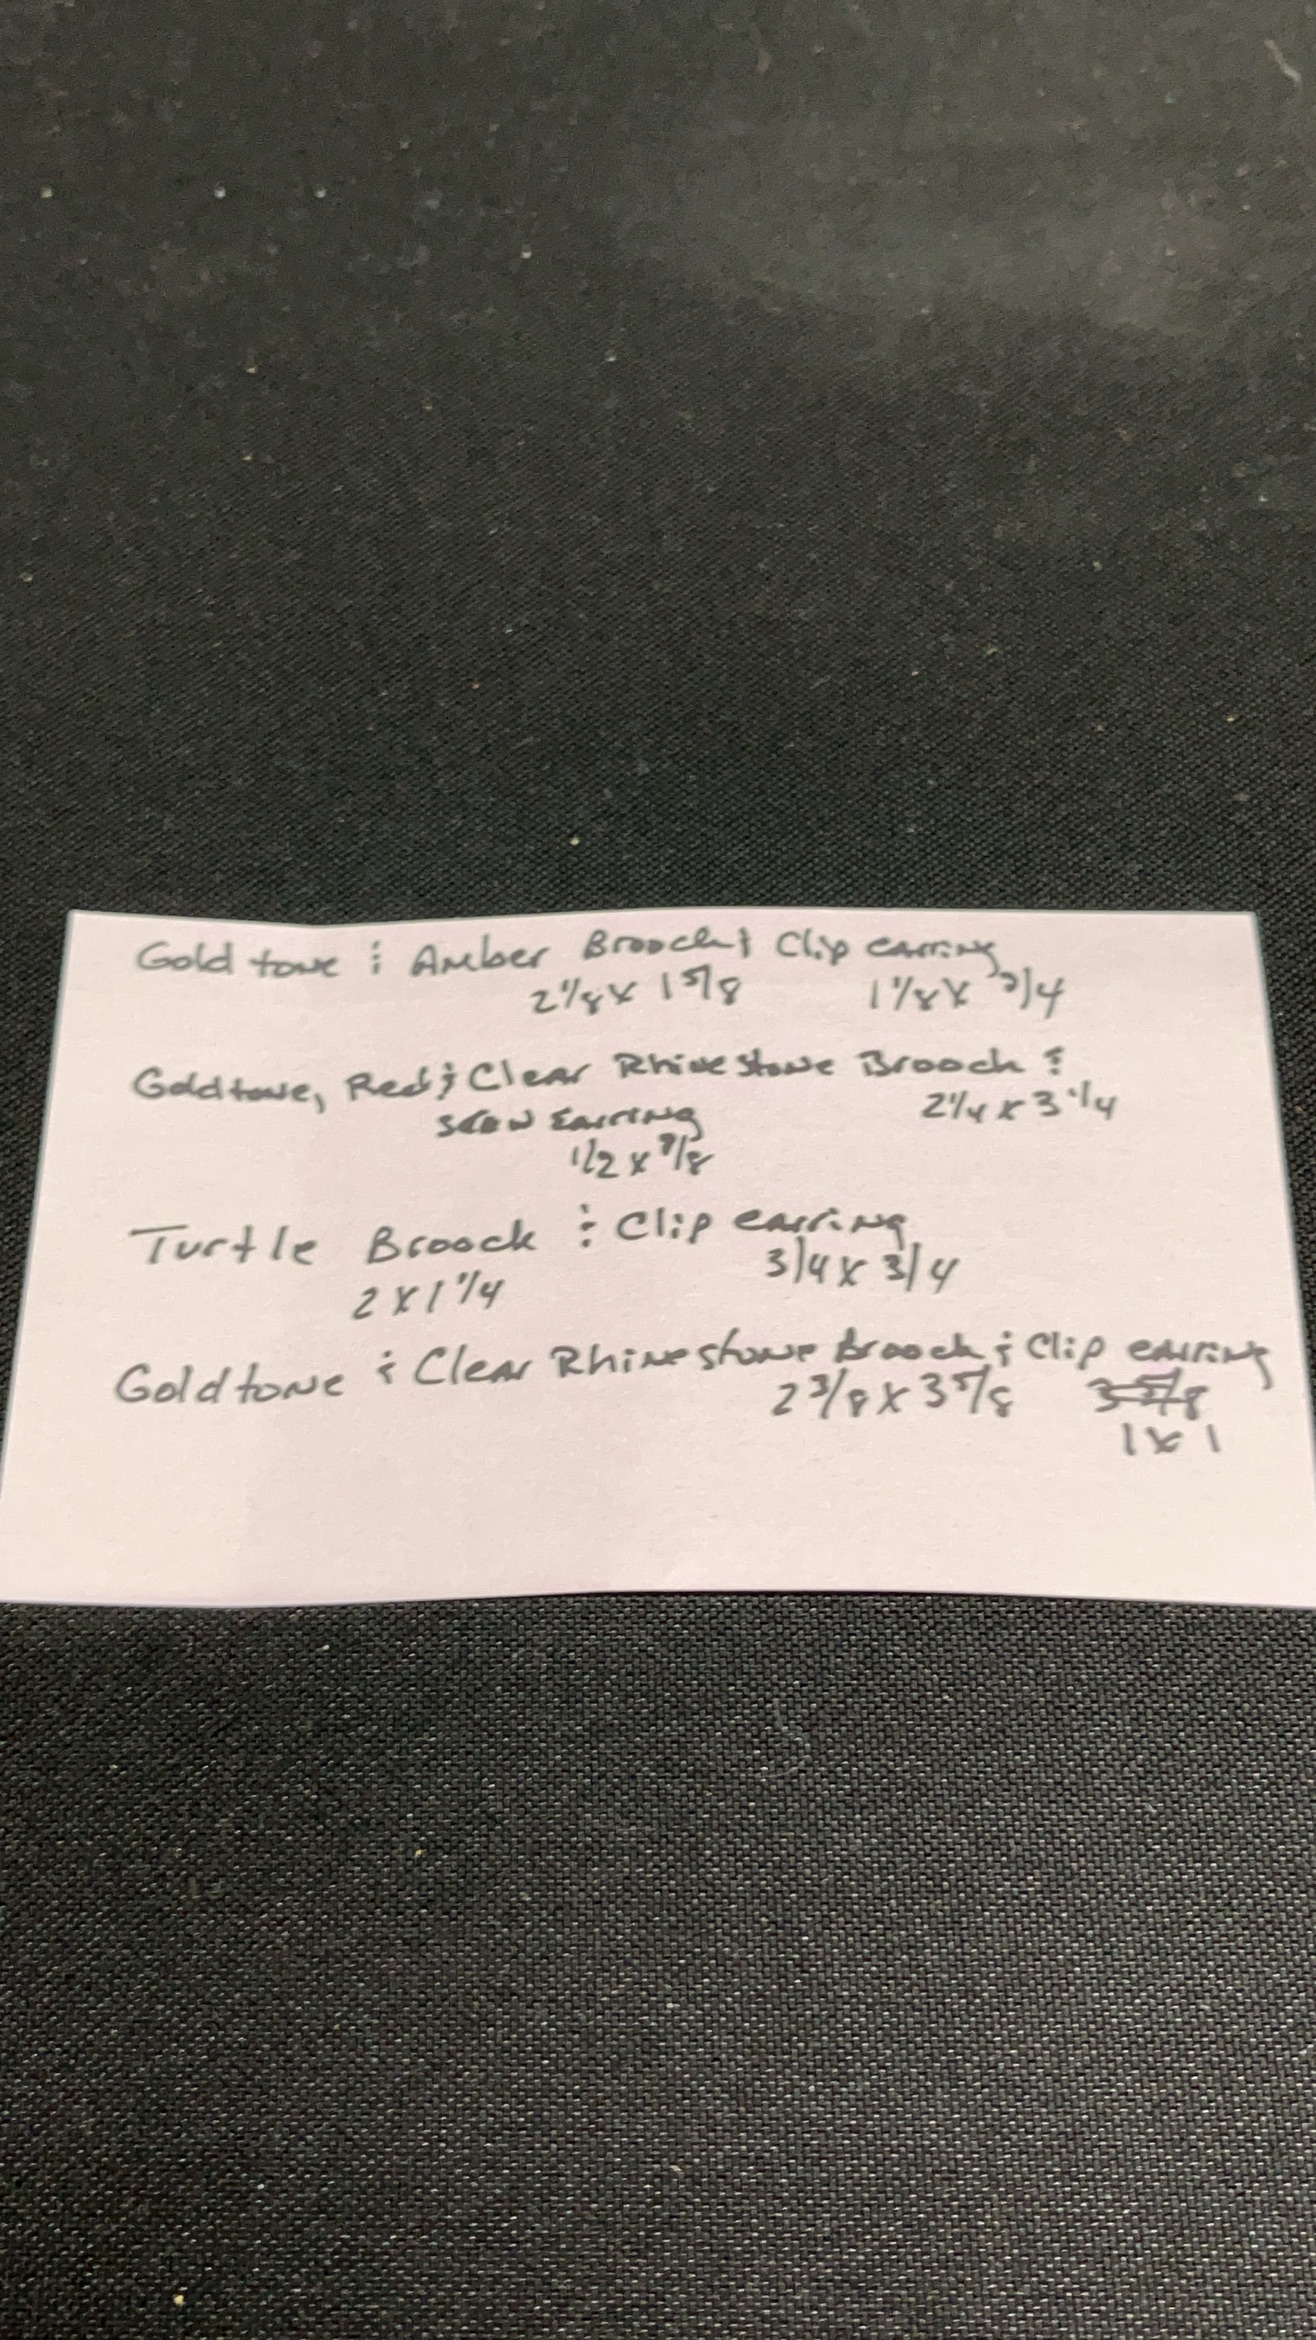 Goldtone & Amber Brooch & Clip earring
2 1/8 x 1 5/8 1 1/8 x 3/4
Goldtone, Red & Clear Rhinestone Brooch &
2 1/4 x 3 1/4
screw Earring
1/2 x 7/8
Turtle Brooch & Clip earring
2 x 1 1/4 3/4 x 3/4
Goldtone & Clear Rhinestone Brooch & Clip earring
2 3/8 x 3 5/8 3 5/8
1 x 1